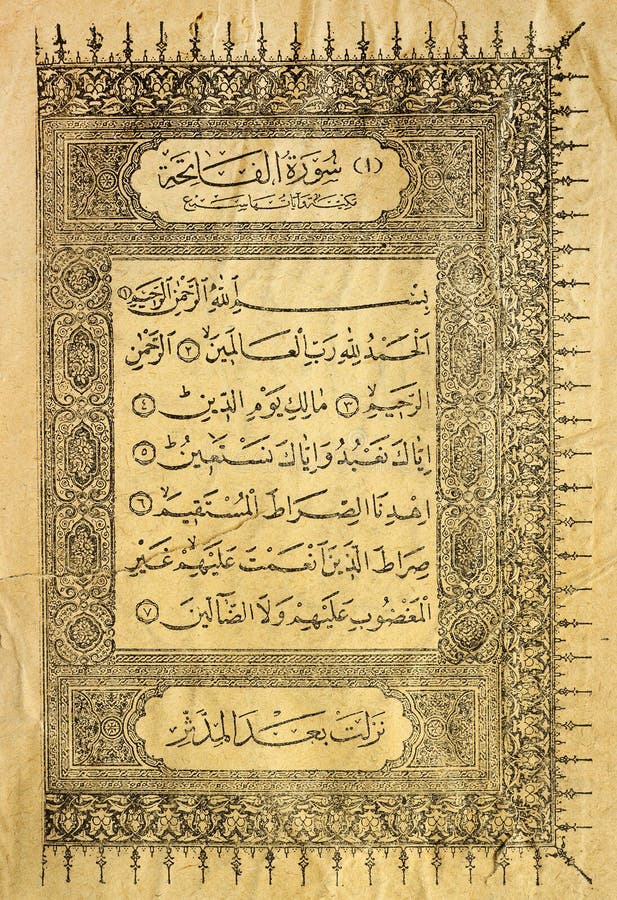 (١) سُورَةُ الفَاتِحَة
مكيّة وآياتها سبع
بِسْمِ اللهِ الرَّحْمٰنِ الرَّحِيمِ ١
اَلْحَمْدُ لِلّٰهِ رَبِّ الْعَالَمِينَۙ ٢ اَلرَّحْمٰنِ
الرَّحِيمِۙ ٣ مَالِكِ يَوْمِ الدِّينِۜ ٤
اِيَّاكَ نَعْبُدُ وَاِيَّاكَ نَسْتَعِينُۜ ٥
اِهْدِنَا الصِّرَاطَ الْمُسْتَقِيمَۙ ٦
صِرَاطَ الَّذِينَ اَنْعَمْتَ عَلَيْهِمْۙ غَيْرِ
الْمَغْضُوبِ عَلَيْهِمْ وَلَا الضَّٓالِّينَ ٧
نَزَلَتْ بَعْدَ المُدَّثِّر